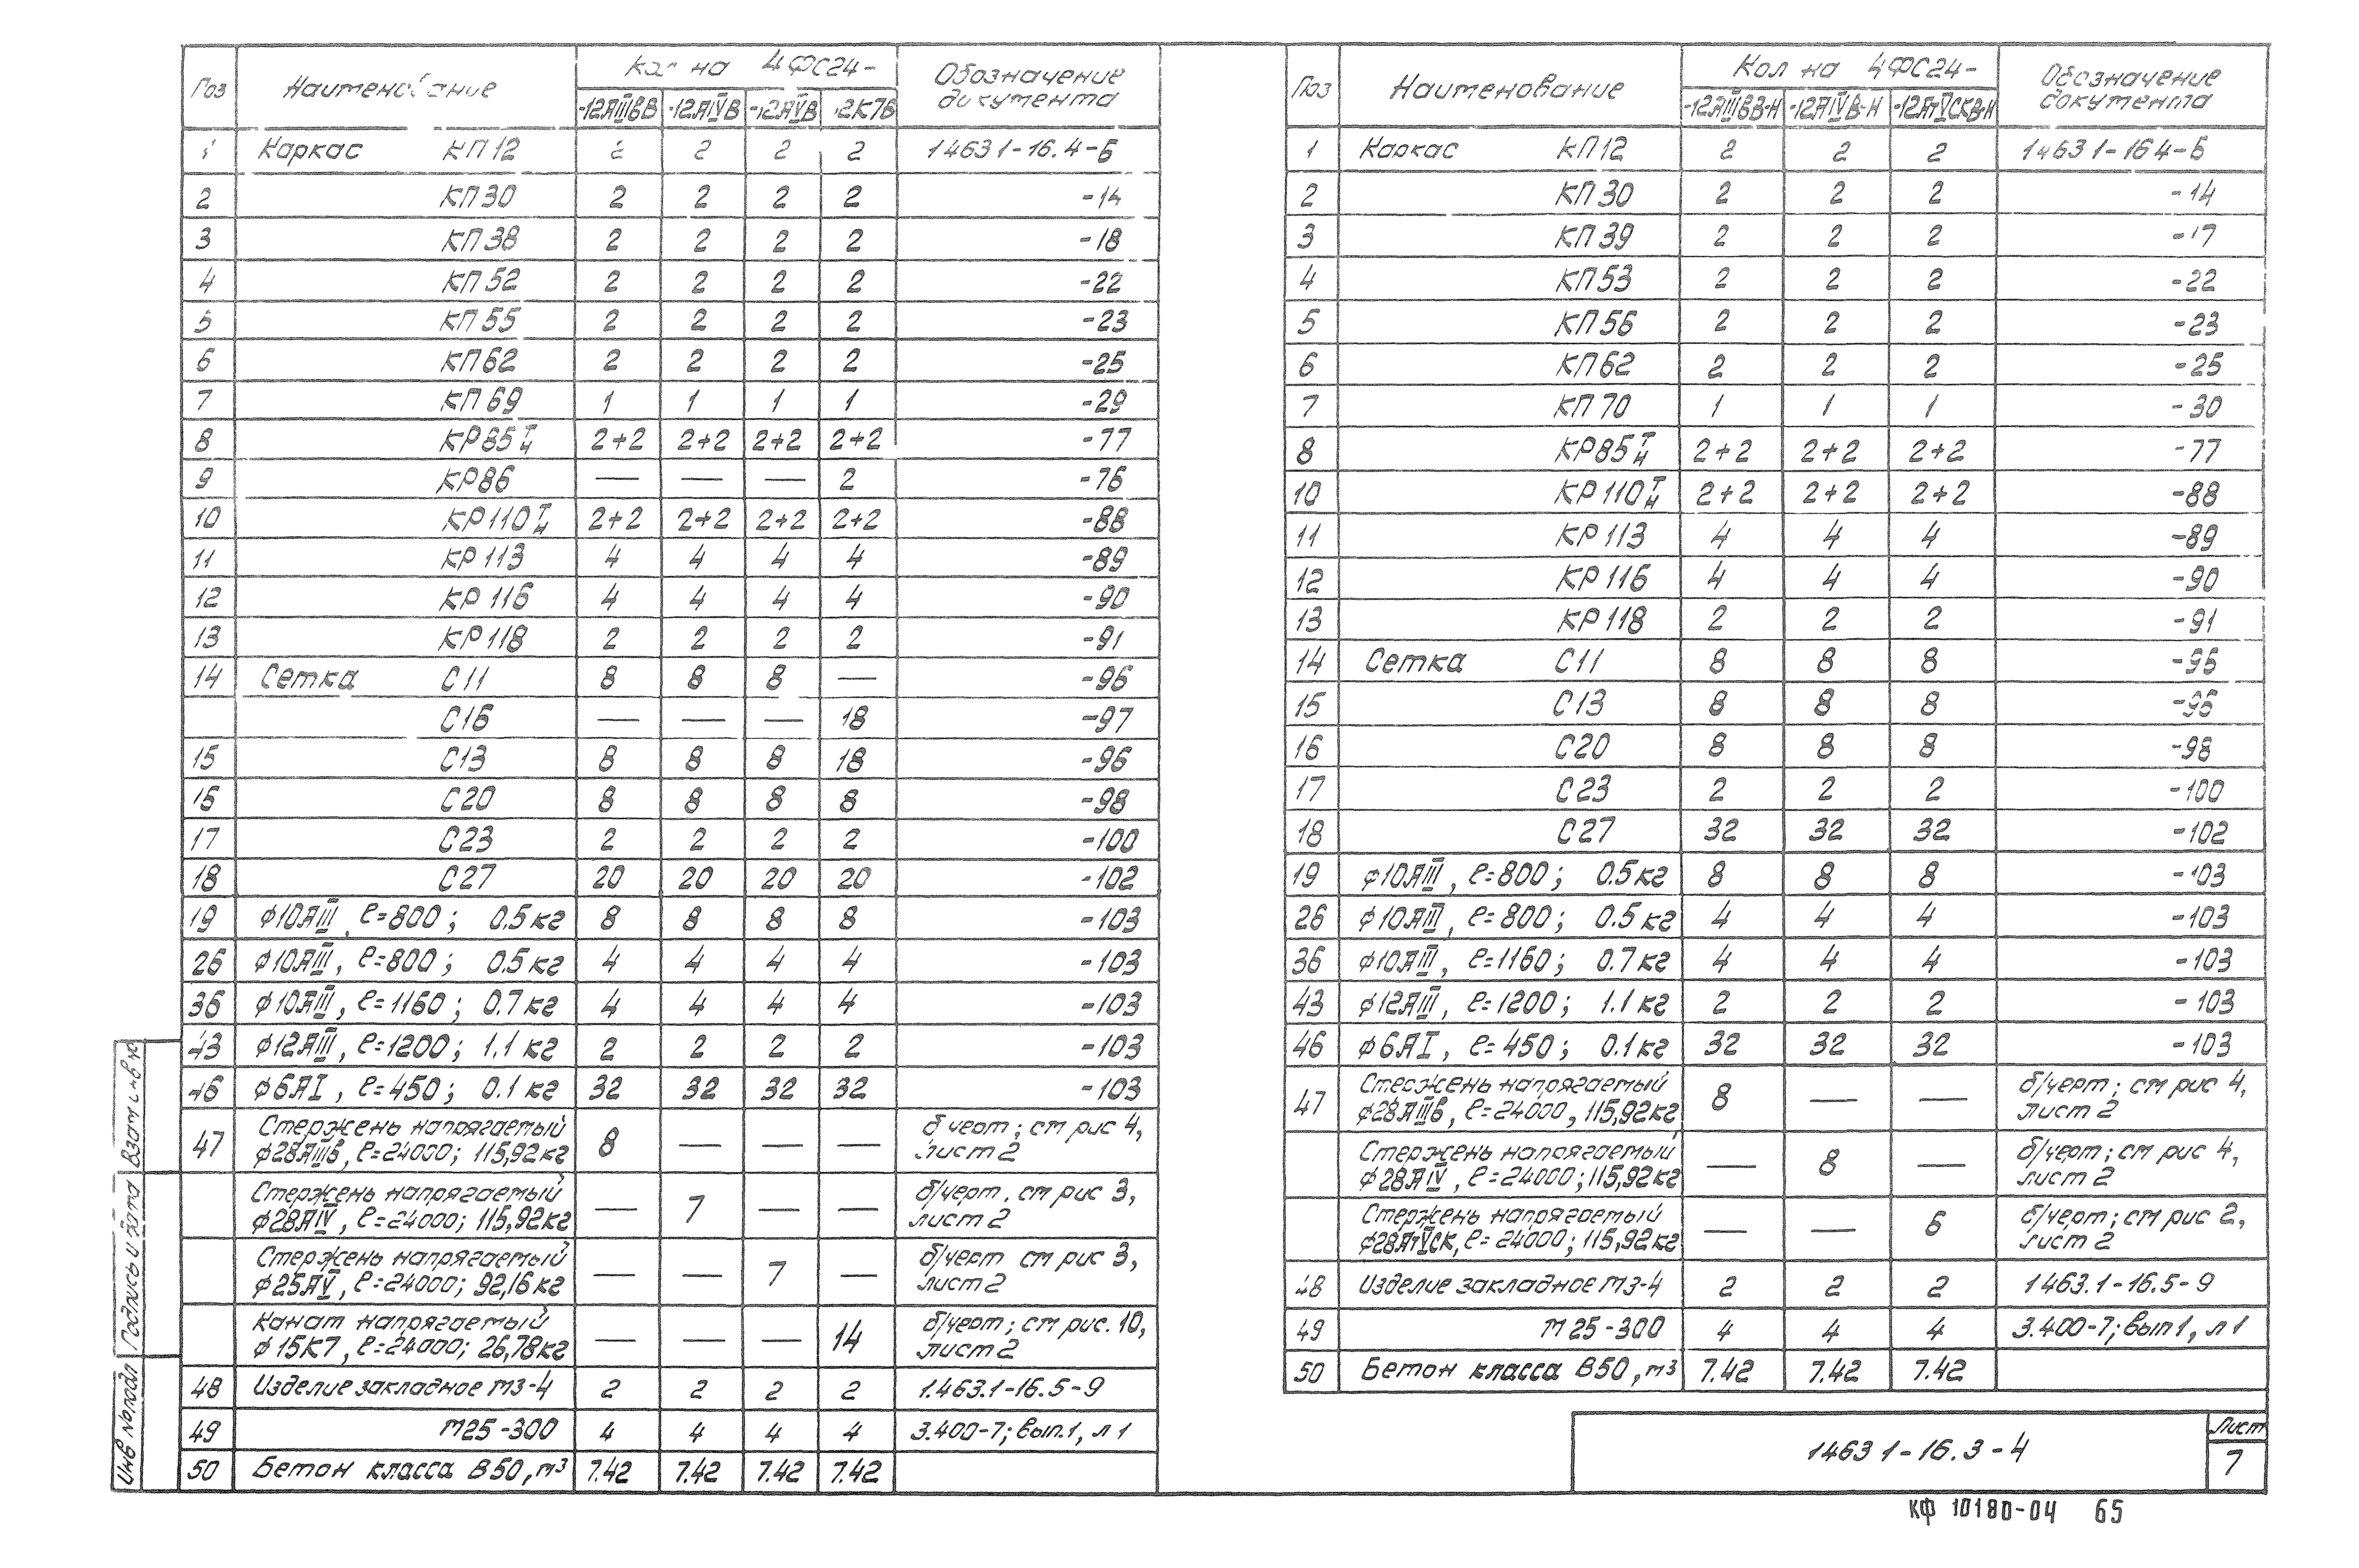 Поз Наименование Кол на 4ФС24- Обозначение документа
-12АIIIвВ -12АIVВ -12АVВ -12К7В
1 Каркас КП12 2 2 2 2 1463 1-16.4-6
2 КП30 2 2 2 2 -14
3 КП38 2 2 2 2 -18
4 КП52 2 2 2 2 -22
5 КП55 2 2 2 2 -23
6 КП62 2 2 2 2 -25
7 КП69 1 1 1 1 -29
8 КР85 Т/Н 2+2 2+2 2+2 2+2 -77
9 КР86 — — — 2 -76
10 КР110 Т/Н 2+2 2+2 2+2 2+2 -88
11 КР113 4 4 4 4 -89
12 КР116 4 4 4 4 -90
13 КР118 2 2 2 2 -91
14 Сетка С11 8 8 8 — -96
С16 — — — 18 -97
15 С13 8 8 8 18 -96
16 С20 8 8 8 8 -98
17 С23 2 2 2 2 -100
18 С27 20 20 20 20 -102
19 ϕ10АIII, ℓ=800; 0.5кг 8 8 8 8 -103
26 ϕ10АIII, ℓ=800; 0.5кг 4 4 4 4 -103
36 ϕ10АIII, ℓ=1160; 0.7кг 4 4 4 4 -103
43 ϕ12АIII, ℓ=1200; 1.1кг 2 2 2 2 -103
46 ϕ6АI, ℓ=450; 0.1кг 32 32 32 32 -103
47 Стержень напрягаемый ϕ28АIIIв, ℓ=24000; 115,92кг 8 — — — б черт; см рис 4, лист 2
Стержень напрягаемый ϕ28АIV, ℓ=24000; 115,92кг — 7 — — б/черт. см рис 3, лист 2
Стержень напрягаемый ϕ25АV, ℓ=24000; 92,16кг — — 7 — б/черт см рис 3, лист 2
Канат напрягаемый ϕ15К7, ℓ=24000; 26,78кг — — — 14 б/черт; см рис. 10, лист 2
48 Изделие закладное М3-4 2 2 2 2 1.463.1-16.5-9
49 М25-300 4 4 4 4 3.400-7; вып.1, л 1
50 Бетон класса В50, м³ 7.42 7.42 7.42 7.42
Поз Наименование Кол на 4ФС24- Обозначение документа
-12АIIIвВ-Н -12АIVВ-Н -12АтVСКВ-Н
1 Каркас КП12 2 2 2 1463 1-16 4-6
2 КП30 2 2 2 -14
3 КП39 2 2 2 -17
4 КП53 2 2 2 -22
5 КП56 2 2 2 -23
6 КП62 2 2 2 -25
7 КП70 1 1 1 -30
8 КР85 Т/Н 2+2 2+2 2+2 -77
10 КР110 Т/Н 2+2 2+2 2+2 -88
11 КР113 4 4 4 -89
12 КР116 4 4 4 -90
13 КР118 2 2 2 -91
14 Сетка С11 8 8 8 -96
15 С13 8 8 8 -96
16 С20 8 8 8 -98
17 С23 2 2 2 -100
18 С27 32 32 32 -102
19 ϕ10АIII, ℓ=800; 0.5кг 8 8 8 -103
26 ϕ10АIII, ℓ=800; 0.5кг 4 4 4 -103
36 ϕ10АIII, ℓ=1160; 0.7кг 4 4 4 -103
43 ϕ12АIII, ℓ=1200; 1.1кг 2 2 2 -103
46 ϕ6АI, ℓ=450; 0.1кг 32 32 32 -103
47 Стержень напрягаемый ϕ28АIIIв, ℓ=24000, 115,92кг 8 — — б/черт; см рис 4, лист 2
Стержень напрягаемый ϕ28АIV, ℓ=24000; 115,92кг — 8 — б/черт; см рис 4, лист 2
Стержень напрягаемый ϕ28АтVСК, ℓ=24000; 115,92кг — — 6 б/черт; см рис 2, лист 2
48 Изделие закладное М3-4 2 2 2 1463.1-16.5-9
49 М25-300 4 4 4 3.400-7; вып 1, л 1
50 Бетон класса В50, м³ 7.42 7.42 7.42
Инв №подл Подпись и дата Взам инв №
1463 1-16.3-4 Лист
7
КФ 10180-04 65